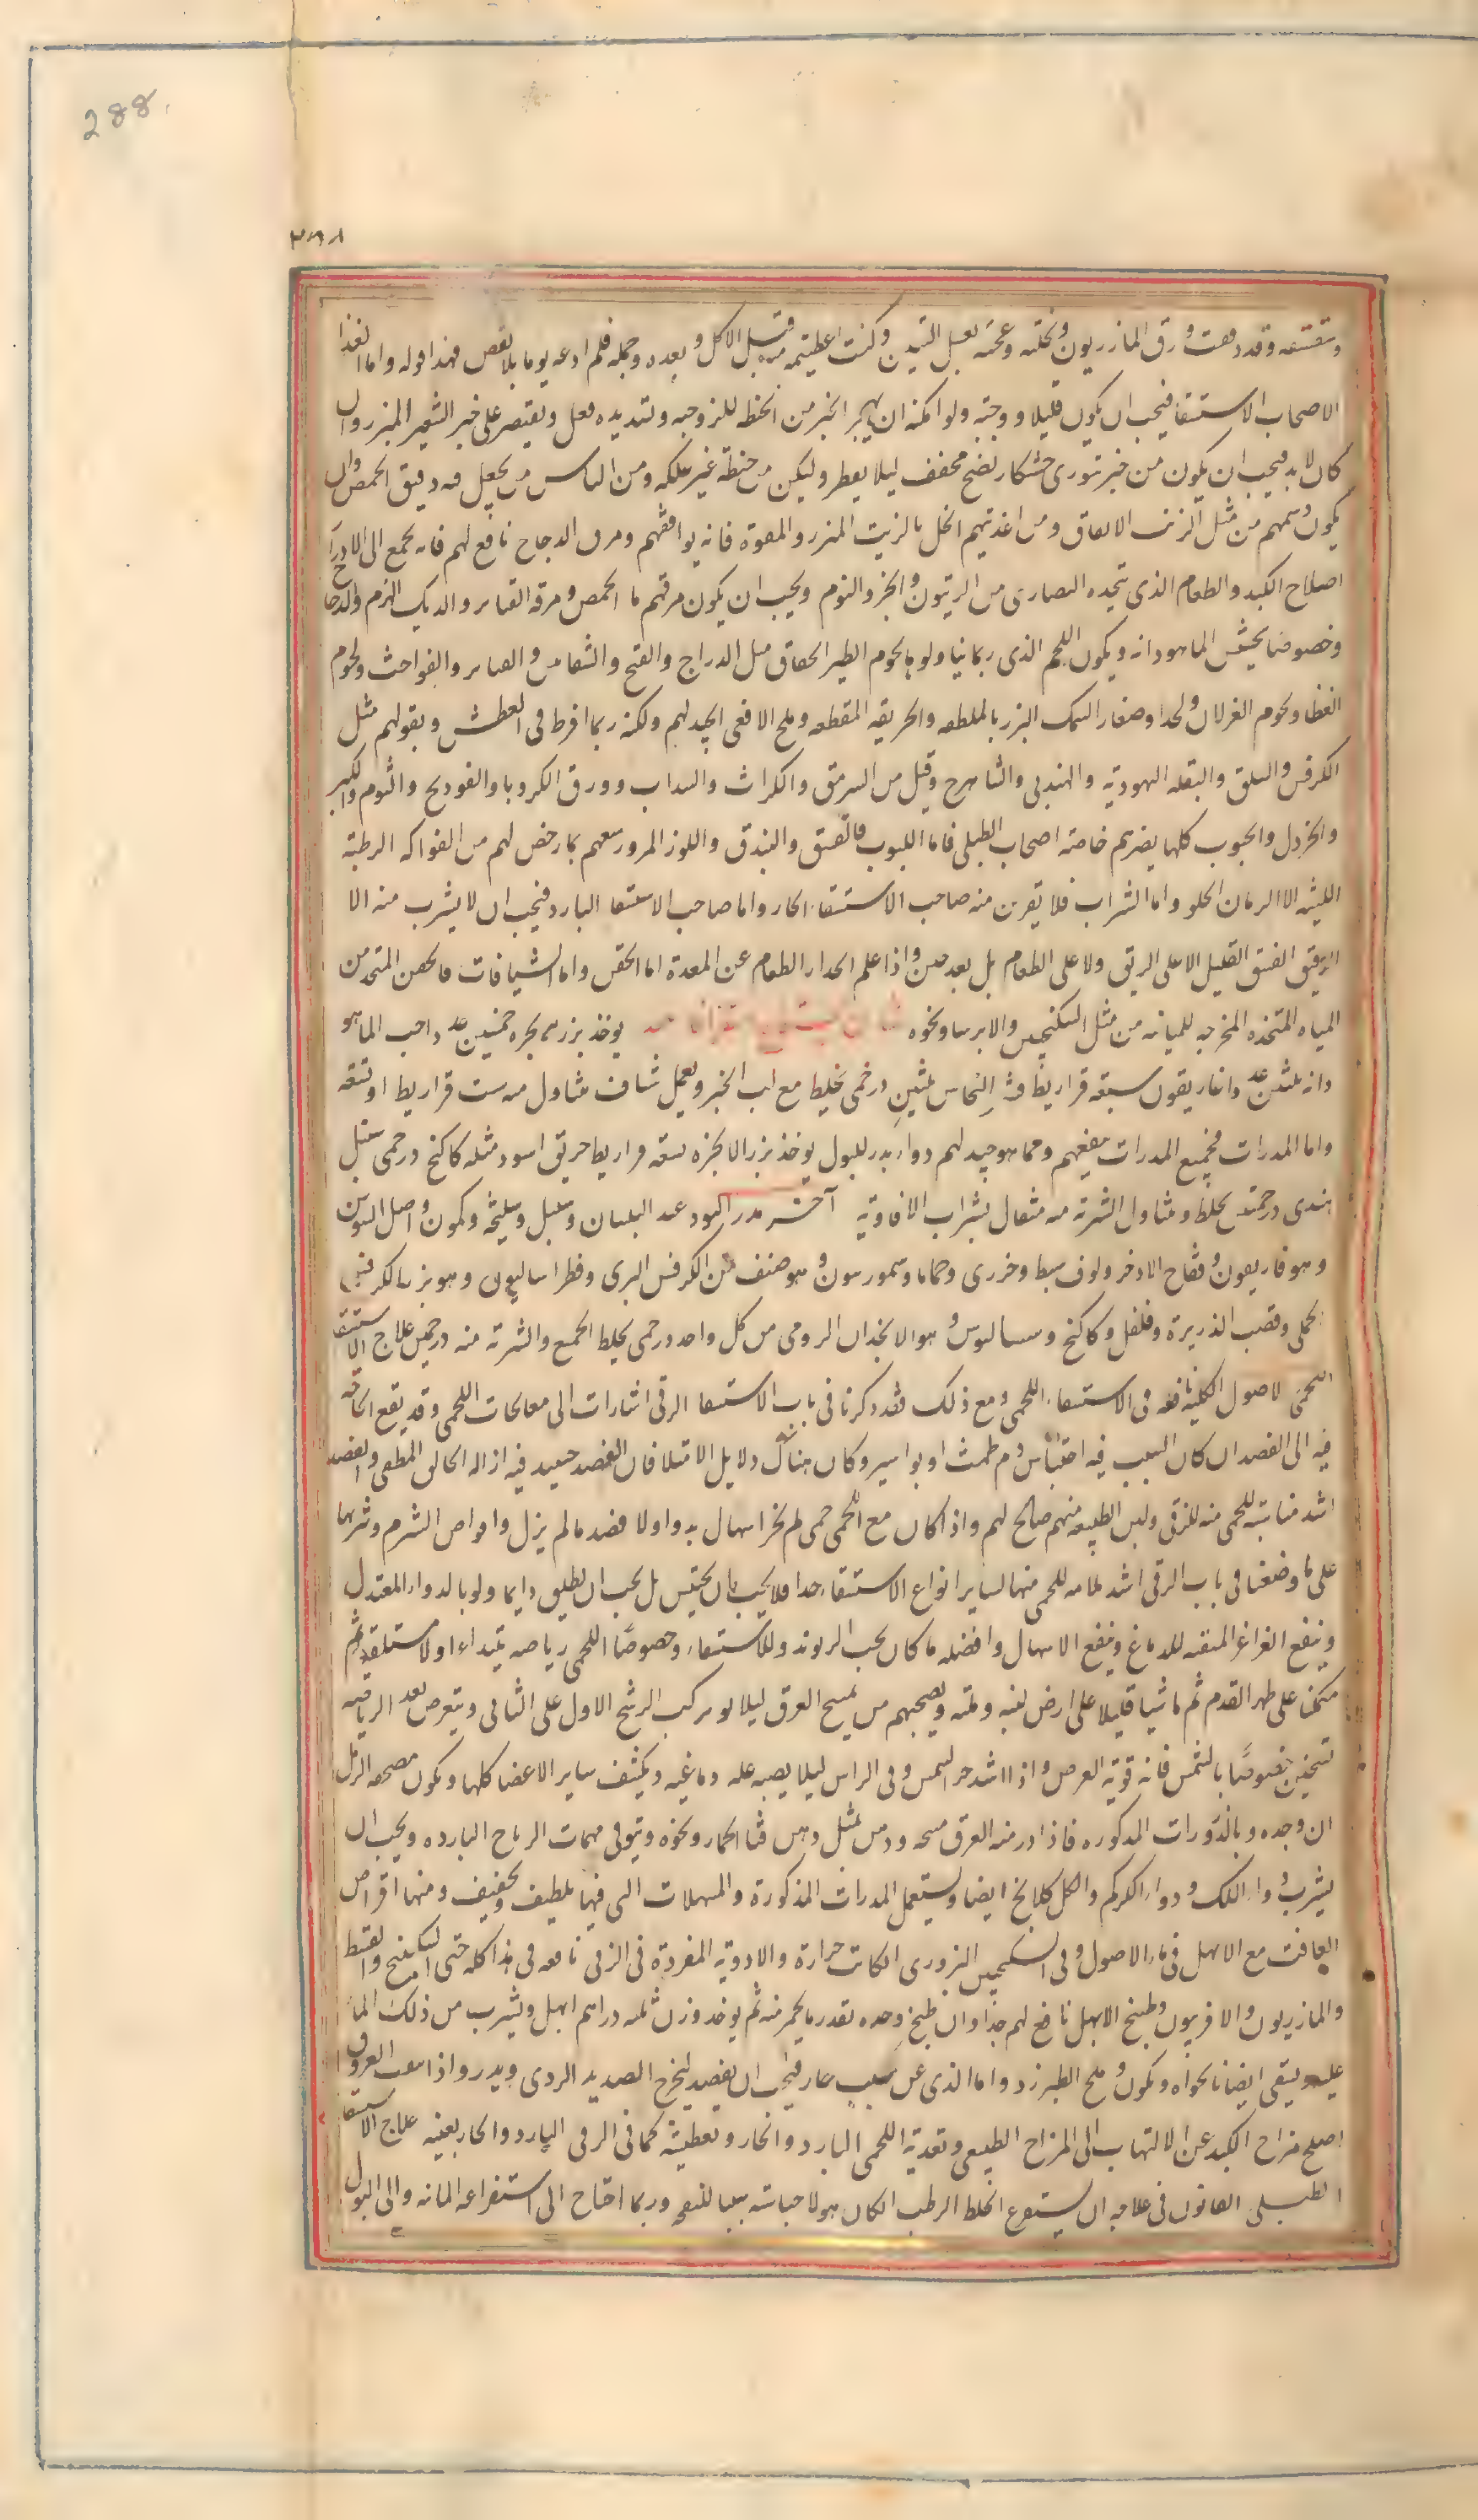 288
٢٨٨
وقد دققت ورق المازريون ونخلته وعجنته بعسل التين وكنت اعطيته منه قبل الاكل وبعده وجملة فلم ادعه يوما بلا نفض فهذا قوله واما الغذا
لاصحاب الاستسقا فيجب ان يكون قليلا ووجبة ولو امكنه ان يهجر الخبز من الحنطة للزوجته ولتسديده فعل ويقتصر على خبز الشعير المبزر وان
كان لا بد فيجب ان يكون من خبز تنوري خشكار نضج مجفف ليلا يعطر وليكن من حنطة غير علكة ومن الناس من يجعل فيه دقيق الحمص وان
يكون دسمهم من مثل الزيت الانفاق ومن اغذيتهم الخل بالزيت المبزر والمفوه فانه يوافقهم ومرق الدجاج نافع لهم فانه يجمع الى الادرار
اصلاح الكبد والطعام الذي يتخذه النصارى من الزيتون والجزر والثوم ويجب ان يكون مرقهم ما الحمص ومرقة القنابر والديك الهرم والدجاج
وخصوصا بحشيش الماهودانه ويكون اللحم الذي ربما نيا ولوه لحوم الطير الخفاف مثل الدراج والقبج والشفانين والقنابر والفواخت ولحوم
القطا ولحوم الغزلان والجدا وصغار السمك البزر بالملطفة والحريفة المقطعة وملح الافعى الجيد لهم ولكنه ربما افرط في العطش وبقولهم مثل
الكرفس والسلق والبقلة اليهودية والهندبي والشاهترج وقيل من السرمق والكراث والسداب وورق الكرويا والفوذنج والثوم والكبر
والخردل والحبوب كلها يضرهم خاصة اصحاب الطبلي فاما اللبوب فالفستق والبندق واللوز المر ورسعهم بما رخص لهم من الفواكه الرطبة
اللينة الا الرمان الحلو واما الشراب فلا يقربن منه صاحب الاستسقا الحار واما صاحب الاستسقا البارد فيجب ان لا يشرب منه الا
الرقيق العتيق القليل لا على الريق ولا على الطعام بل بعد حين واذا علم انحدار الطعام عن المعدة اما الحقن واما الشيافات فالحقن المتخذ من
المياه المتخذه المخرجه للمائيه من مثل السكنجبين والايرسا ونحوه يوخذ بزر انجره خمسين عدد احب الماهو
دانه ثلثين عدد واغاريقون سبعة قراريط قشر النحاس ثلثين درخمى يخلط مع لب الخبز ويعمل شاف متناول منه ست قراريط او تسعه
واما المدرات فجميع المدرات ينفعهم ومما هو جيد لهم دواء يدر للبول يوخذ بزر الانجره تسعة قراريط خربق اسود مثله كاكنج درخمى سنبل
هندي درخمى يخلط ويتناول الشربة منه مثقال بشراب الافاويه آخر مدر البول عيد البلسان وسنبل وسليخة وكمون واصل السوسن
وهوفاريقون وفقاح الاذخر ولوف سبط وخرري وحماما وسمورسون وهو صنف من الكرفس البري وفطراساليون وهو بزر الكرفس
الجبلي وقصب الذريرة وفلفل وكاكنج وسساليوس وهو الانجذان الرومي من كل واحد درخمى يخلط الجميع والشربة منه درخمين علاج الاستسقا
اللحمى الاصول الكلية نافعه في الاستسقاء اللحمى ومع ذلك فقد ذكرنا في باب الاستسقا الزقي اشارات الى معالجات اللحمى وقد يقع الحاجه
فيه الى الفصد ان كان السبب فيه احتباس دم طمث او بواسير وكان هناك دلايل الامتلا فان الفصد حينيد فيه ازاله الخانق المطفى والفصد
اشد مناسبة للحمى منه للزقي ولين الطبيعة منهم صالح لهم واذا كان مع اللحمى حمى لم يجز اسهال بدواء ولا فصد ما لم يزل واقراص الشبرم وشربها
على ما وضعنا في باب الزقي اشد ملامه للحمى منها لساير انواع الاستسقاء جدا فلا يجب ان يحتبس بل يجب ان يطلق دايما ولو بالدواء المعتدل
وينفع الغراغر المنقية للدماغ وينفع الاسهال وافضله ما كان بحب الريوند وللاستسقاء وخصوصا اللحمى رياضه يبتداء اولا مستلقيا ثم
متكنا على ظهر القدم ثم ماشيا قليلا على ارض لينه ورمله ويصحبهم من يمسح العرق ليلا يوركب الرشح الاول على الثاني ويتعرض بعد الرياضه
لتسخين خصوصا بالشمس فانه قوية الغوص واذا اشتد حر الشمس وقى الراس ليلا يصيبه علة دماغيه ويكشف ساير الاعضا كلها ويكون مضجعه الرمل
ان وجده وبالذرورات المذكوره فاذا ادر منه العرق مسحه ودهن بمثل دهن قثا الحمار ونحوه ويتوقى مهبات الرياح البارده ويجب ان
يشرب دواء اللك ودواء الكركم والكلكلانج ايضا ويستعمل المدرات المذكورة والمسهلات التي فيها تلطيف وتجفيف ومنها اقراص
الغافت مع الابهل في ماء الاصول وفي السكنجبين البزوري ان كانت حرارة والادوية المفردة في الزقي نافعه في هذا كله حتى السكبينج والقسط
والمازريون والافربيون وطبخ الابهل نافع لهم جدا وان طبخ وحده بقدر ما يحمر منه ثم يوخذ وزن ثلثه دراهم ابهل ويشرب من ذلك الما
عليه ويسقى ايضا نانخواه وكمون وملح الطبرزد واما الذي عن سبب حار فيجب ان يفصد ليخرج الصديد الردي ويدر واذا نقيت العروق
اصلح مزاج الكبد عن الالتهاب الى المزاج الطبيعي وتغذية اللحمى البارد والحار وتعطيشه كما في الزقي البارد والحار بعينه علاج الاستسقا
الطبلي القانون في علاجه ان يستفرغ الخلط الرطب ان كان هو لاحتباسه سببا للنفخ وربما احتاج الى استفراغ المائية والى البزل